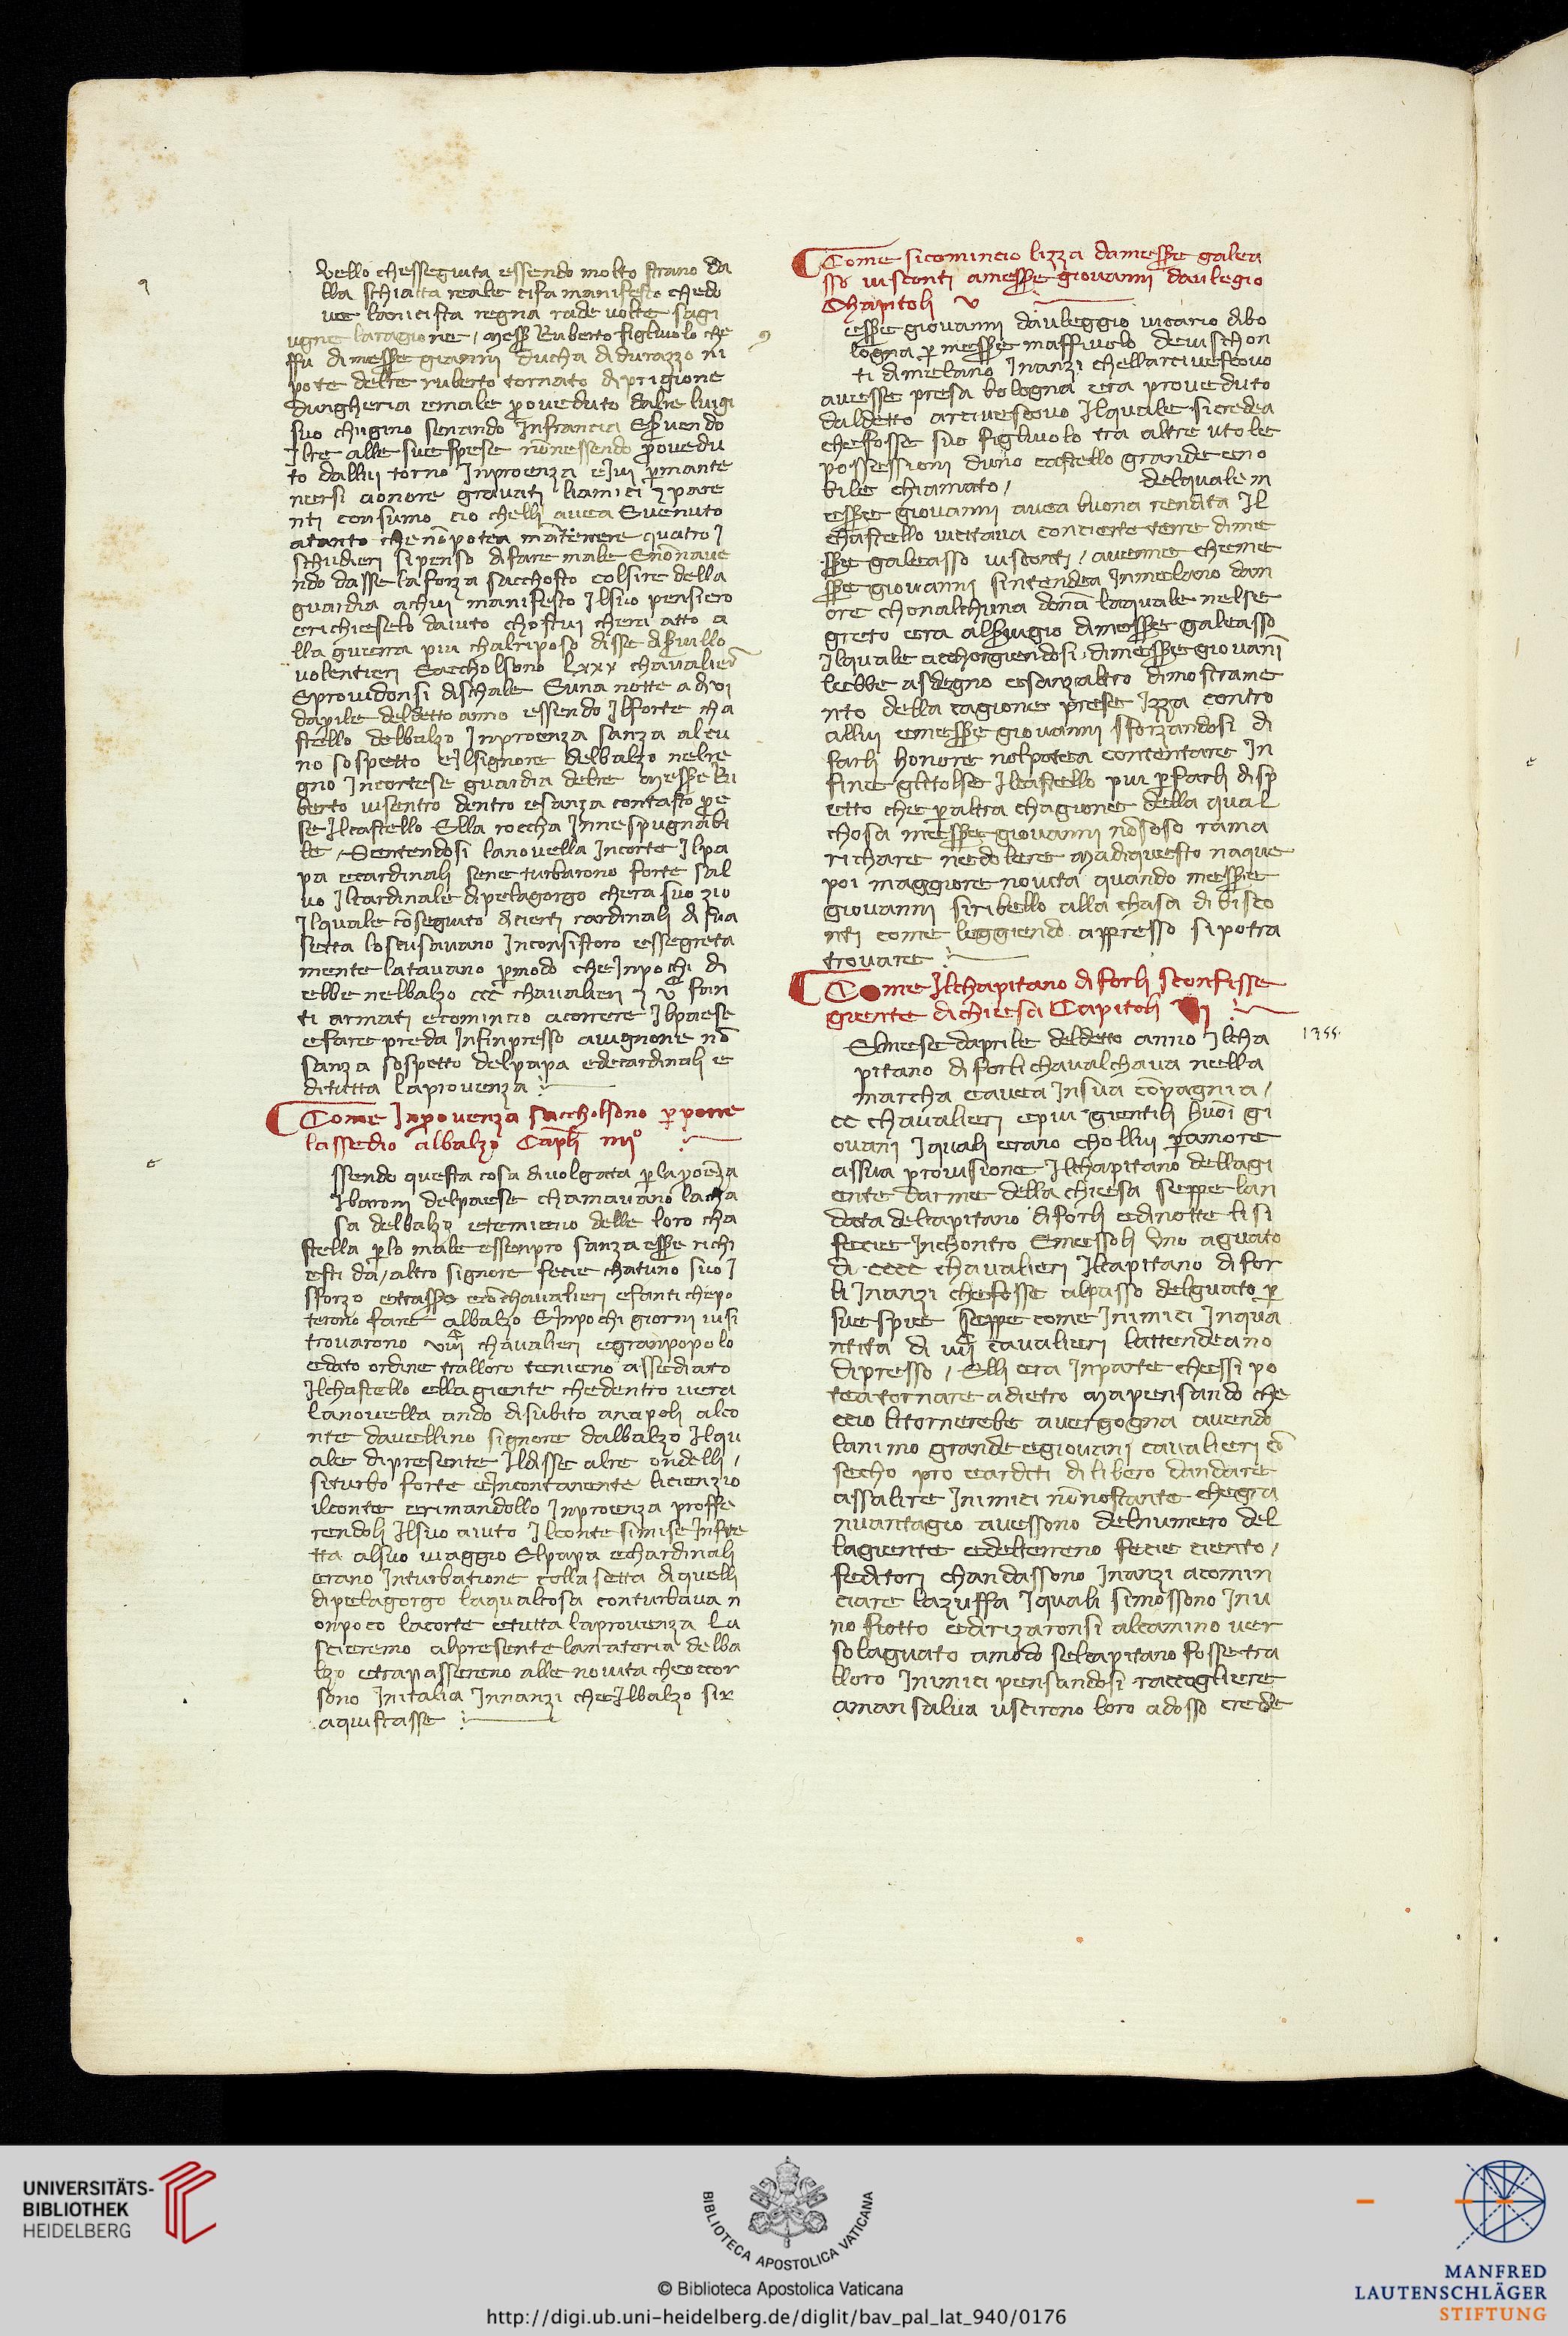 vello chesseguita essendo molto strano da
lla schiatta reale cifa manifesto chedo
ve lanicista regna rade volte sagi
ugne laragione / Messer Ruberto figluolo che
ffu di messere gianni ducha di durazzo ni
pote delre ruberto tornato di prigione
dungheria emale proveduto dalre luigi
suo chugino senando Infrancia E servendo
Ilre alle sue spese nonessendo provedu
to dallui torno Inproenza e Ivi per mante
nersi aonore gravati liamici 7 pare
nti consumo cio chelli avea E venuto
atanto che nō potea mātenere quatro I
schudieri si penso difare male E nō nave
ndo dasse la forza sacchosto colsire della
guardia achui manifesto Ilsuo pensiero
erichieselo daiuto chostui chera atto a
lla guerra piu chalriposo disse di servillo
volentieri E accholsono lxxx chavalieri
E providonsi dischale E una notte adi vi
daprile deldetto anno essendo Ilforte cha
stello delbalzo Inproenza sanza alcu
no sospetto e Ilsignore delbalzo nelre
gno Incortese guardia delre Messere Ru
berto visentro dentro esanza contasto pre
se Ilcastello E lla roccha Innespugnabi
le / Sentendosi lanovella Incorte Ilpa
pa ecardinali sene turbarono forte sal
vo Ilcardinale dipelagorgo chera suo zio
Ilquale cō seguito di cierti cardinali di sua
setta loscusavano Inconsistoro essegreta
mente latavano per modo che Inpochi di
ebbe nelbalzo ccc chavalieri 7 vc fan
ti armati ecomincio acorrere Ilpaese
efare preda Infinpresso avignone nō
sanza sospetto delpapa edecardinali e
ditutta laprovenza :
Come Inprovenza sacholsono per porre
lassedio albalzo Capitoli iiiio
ssendo questa cosa divolgata per la poēza
Ibaroni delpaese chamavano lacha
sa delbalzo etemieno delle loro cha
stella per lo male essenpro sanza essere richi
esti da / altro signore fecie chatuno suo I
sforzo etrassero ecō chavalieri efanti chepo
terono fare albalzo E Inpochi giorni visi
trovarono viiic chavalieri egranpopolo
edato ordine tralloro tenieno assediato
Ilchastello ella giente chedentro vera
lanovella ando disubito anapoli alco
nte davellino signore dalbalzo Ilqu
ale dipresente Ildisse alre ondelli /
siturbo forte e Incontanente licienzio
ilconte erimandollo Inproenza proffe
rendoli Ilsuo aiuto Ilconte simise Infre
tta alsuo viaggio Elpapa echardinali
erano Inturbatione colla setta di quelli
dipelagorgo laqualcosa conturbava n
onpoco lacorte etutta laprovenza La
scieremo alpresente lamateria delba
lzo etrapassereno alle novita cheoccor
sono Initalia Innanzi che Ilbalzo sir
aquistasse :
Come sicomincio lizza damessere galea
sso visconti amessere giovanni daulegio
Chapitoli v
essere giovanni dauleggio vicario dibo
logna per messere maffiuolo devischon
ti dimelano Inanzi chellarcivescovo
avesse presa bologna era proveduto
daldetto arcivescovo Ilquale sicredea
chefosse suo figluolo tra altre utole
possessioni duno castello grande eno
bile chiamato / delquale m
essere giovanni avea buona rendita Il
chastello vicitava conciente terre dime
ssere galeasso visconti / avenne cheme
ssere giovanni sintendea Inmelano dam
ore chonalchuna donā laquale nelse
greto era alservigio dimessere galeasso
Ilquale acchorgiendosi dimessere giovanī
lebbe asdegno esanzaltro dimostrame
nto della cagione prese Izza contro
allui emessere giovanni sforzandosi di
farli honore nolpotea contentare In
fine glitolse Ilcastello piu per farli disp
etto che per altra chagione della qual
chosa messere giovanni nōsoso rama
richare nedolere Madiquesto naque
poi maggiore novita quando messere
giovanni siribello alla chasa di bisco
nti come leggiendo appresso sipotra
trovare :
Come Ilchapitano di forli sconfisse
giente dichiesa Capitoli vi :
Elmese daprile deldetto anno Ilcha
pitano di forli chavalchava nella
marcha eavea Insua cōpagnia /
cc chavalieri epiu gientili huoī gi
ovani Iquali erano chollui per amore
assua provisione Ilchapitano dellagi
ente darme della chiesa seppe lan
data delcapitano di forli edinotte lisi
fecie Inchontro E messoli uno aguato
di cccc chavalieri Ilcapitano difor
li Inanzi chefosse alpasso delguato per
sue spie seppe come Inimici Inqua
ntita di iiiic cavalieri lattendeano
dipresso / Elli era Inparte chessi po
tea tornare adietro Mapensando che
ccio litornerebe avergogna avendo
lanimo grande egiovani cavalieri cō
secho pro earditi dilibero dandare
assalire Inimici nōnostante chegra
nvantagio avessono delnumero del
lagiente edelterreno fecie ciento /
feditori chandassono Inanzi acomin
ciare lazuffa Iquali simossono Inu
no fiotto edirizaronsi alcamino ver
solaguato amodo selcapitano fosse tra
lloro Inimici pensandosi raccogliere
amansalva uscirono loro adosso crede
1355.
UNIVERSITÄTS-
BIBLIOTHEK
HEIDELBERG
BIBLIOTECA APOSTOLICA VATICANA
© Biblioteca Apostolica Vaticana
http://digi.ub.uni-heidelberg.de/diglit/bav_pal_lat_940/0176
MANFRED
LAUTENSCHLÄGER
STIFTUNG